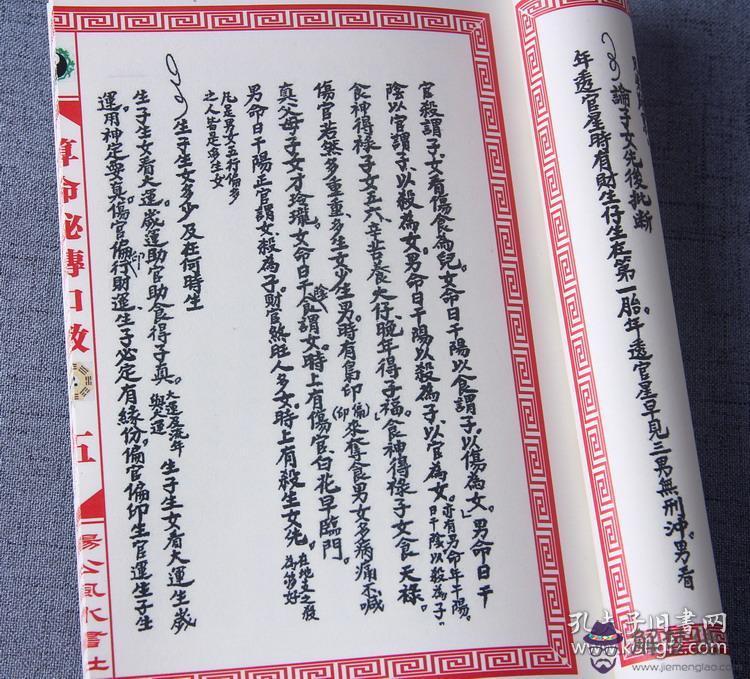 論子女先後批断
年透官星時有財生仔生在第一胎。年透官星早見三男無刑沖。男看
官殺謂子女看傷食為兒。女命日干陽以食謂子以傷為女。男命日干
陰以官謂子以殺為女。男命日干陽以殺為子以官為女。亦有男命年干陽。日干陰以殺為子。
食神得禄子女五六、辛苦養大仔晚年得子福。食神得禄子女食天禄。
傷官若然多重重、多生女少生男。時有梟印(偏印)來奪食男女多病痛不喊
真父母子女才玲瓏。女命日干陰食謂女。時上有傷官、白花早臨門。
男命日干陽正官謂女殺為子財官煞旺人多女。時上有殺生女先。在地支之殺為第好
凡是男女五行偏多
之人皆定多生女
生子生女多少及在何時生
生子生女看大運。歲運助官助食得子真。大運及流年與大運 生子生女看大運生歲
運用神定要真。傷官偏印行財運生子必定有緣份。偏官偏印生官運生子生
算命秘傳口放
五
楊公風水書社
孔夫子旧書网
www.kongfz.com
解夢吧
www.jiemengiao.com